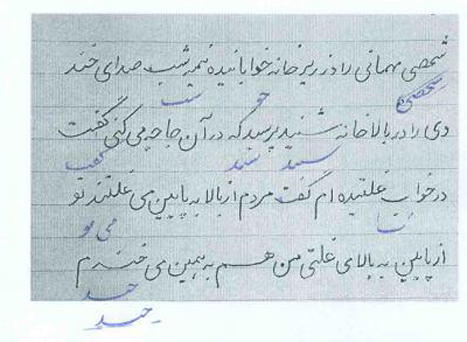 شخصی مهمانی را در زیر خانه خوابانیده نیمه شب صدای خند
شخصی
شب خو
دی را در بالا خانه شنید پرسید که در آن جا چه می کنی گفت
سید نید گفت
در خواب غلتیده ام گفت مردم از بالا به پایین می غلتند تو
می
از پایین به بالا می غلتی من هم به همین می خندم
خند
خند